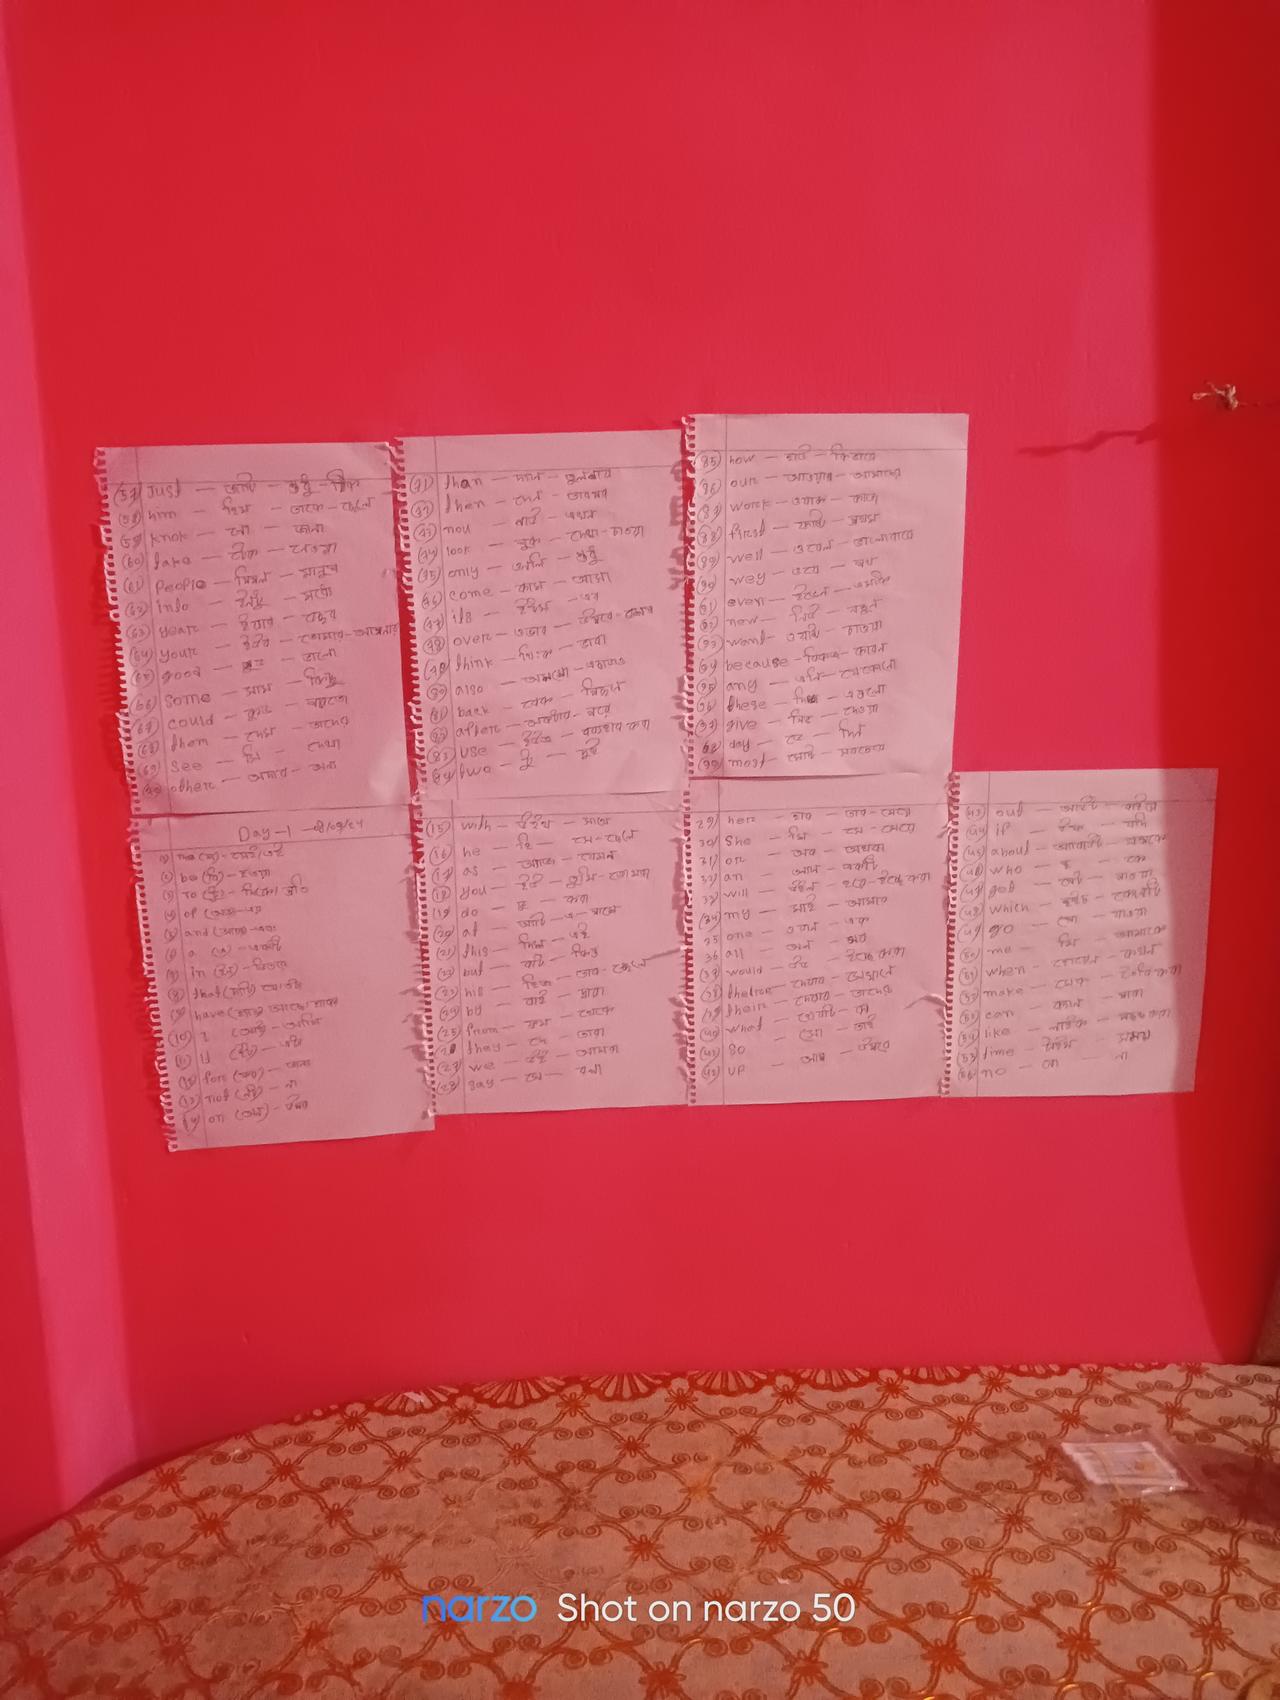 (57) Just — জাস্ট — শুধু - ঠিক
(58) him — হিম — তাকে - ছেলে
(59) know — নো — জানা
(60) take — টেক — নেওয়া
(61) People — পিপল — মানুষ
(62) into — ইনটু — মধ্যে
(63) year — ইয়ার — বছর
(64) your — ইউর — তোমার - আপনার
(65) good — গুড — ভালো
(66) Some — সাম — কিছু
(67) could — কুড — পারতো
(68) them — দেম — তাদের
(69) See — সি — দেখা
(70) other — আদার — অন্য
(71) than — দ্যান — তুলনায়
(72) then — দেন — তারপর
(73) nou — নাউ — এখন
(74) look — লুক — দেখা - চাওয়া
(75) only — অনলি — শুধু
(76) come — কাম — আসা
(77) its — ইটস — এর
(78) over — ওভার — উপরে
(79) think — থিংক — ভাবা
(80) also — অলসো — এছাড়াও
(81) back — ব্যাক — পিছনে
after — আফটার — পরে
(83) use — ইউজ — ব্যবহার করা
(84) two — টু — দুই
(85) how — হাউ — কিভাবে
(86) our — আওয়ার — আমাদের
(87) work — ওয়ার্ক — কাজ
(88) first — ফার্স্ট — প্রথম
(89) well — ওয়েল — ভালোভাবে
(90) wey — ওয়ে — পথ
(91) even — ইভেন — এমনকি
(92) new — নিউ — নতুন
(93) want — ওয়ান্ট — চাওয়া
(94) because — বিকজ — কারন
(95) any — এনি — যেকোনো
(96) these — দিজ — এগুলো
(97) give — গিভ — দেওয়া
(98) day — ডে — দিন
(99) most — মোস্ট — সবচেয়ে
Day-1
(2) be (বি) - হওয়া
(3) To (টু)
(4) of (অফ) - এর
(5) and (অ্যান্ড) - এবং
(6) a (এ) - একটি
(7) in (ইন) - ভিতরে
(8) that
(9) have
(10) I (আই) - আমি
(11) it (ইট)
(12) for (ফর) - জন্য
(13) not (নট) - না
(14) on (অন) - উপর
(15) with — উইথ — সাথে
(16) he — হি — সে - ছেলে
(17) as — অ্যাজ — যেমন
(18) you — ইউ — তুমি - তোমরা
(19) do — ডু — করা
(20) at — অ্যাট
(21) this — দিস — এই
(22) but — বাট — কিন্তু
(23) his — হিজ — তার - ছেলে
(24) by — বাই — দ্বারা
(25) from — ফ্রম — থেকে
(26) they — দে — তারা
(27) we — উই — আমরা
(28) say — সে — বলা
29) her — হার — তার - মেয়ে
30) She — শি — সে - মেয়ে
31) or — অর — অথবা
32) an — অ্যান — একটি
33) will — উইল — হবে - ইচ্ছে করা
(34) my — মাই — আমার
35 one — ওয়ান — এক
36 all — অল — সব
(37) would — উড — ইচ্ছে করা
(38) there — দেয়ার — সেখানে
(39) their — দেয়ার — তাদের
(40) what — হোয়াট — কি
(41) so — সো — তাই
(42) up — আপ — উপরে
(43) out — আউট — বাইরে
(44) if — ইফ — যদি
(45) about — অ্যাবাউট
(46) who — হু — কে
(47) get — গেট — পাওয়া
(48) which — হুইচ — কোনটি
(49) go — গো — যাওয়া
(50) me — মি — আমাকে
(51) when — হোয়েন — কখন
(52) make — মেক — তৈরি করা
(53) can — ক্যান — পারা
(54) like — লাইক — পছন্দ করা
(55) time — টাইম — সময়
(56) no — নো — না
narzo Shot on narzo 50